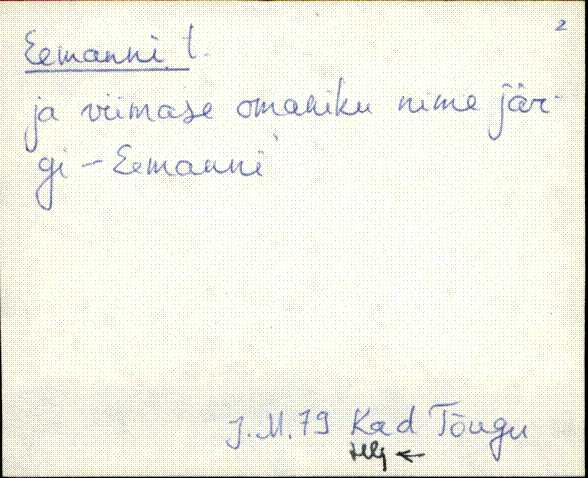 2
Eemanni t.
ja viimase omaniku nime jär-
gi – Eemanni
J.M.79 Kad Tõugu
Hlj ←